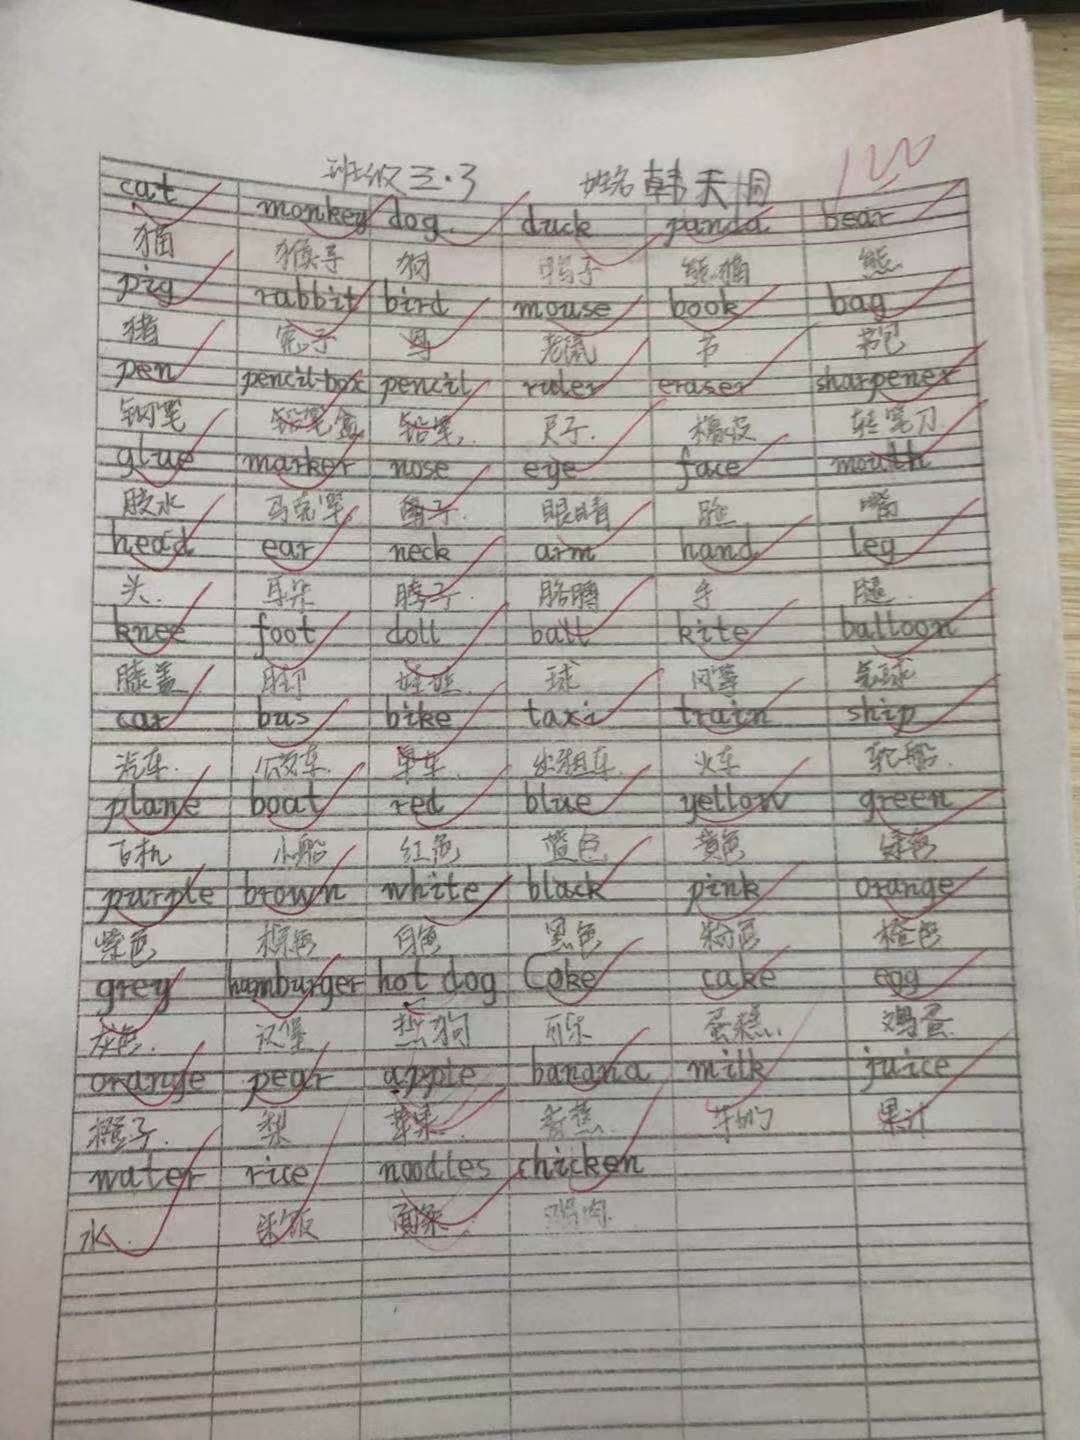 班级三.3 姓名 韩天桐 100
cat monkey dog duck panda bear
猫 猴子 狗 鸭子 熊猫 熊
pig rabbit bird mouse book bag
猪 兔子 鸟 老鼠 书 书包
pen pencil-box pencil ruler eraser sharpener
钢笔 铅笔盒 铅笔 尺子 橡皮 转笔刀
glue marker nose eye face mouth
胶水 马克笔 鼻子 眼睛 脸 嘴
head ear neck arm hand leg
头 耳朵 脖子 胳膊 手 腿
knee foot doll ball kite balloon
膝盖 脚 娃娃 球 风筝 气球
car bus bike taxi train ship
汽车 公交车 单车 出租车 火车 轮船
plane boat red blue yellow green
飞机 小船 红色 蓝色 黄色 绿色
purple brown white black pink orange
紫色 棕色 白色 黑色 粉色 橙色
grey hamburger hot dog Coke cake egg
灰色 汉堡 热狗 可乐 蛋糕 鸡蛋
orange pear apple banana milk juice
橙子 梨 苹果 香蕉 牛奶 果汁
water rice noodles chicken
水 米饭 面条 鸡肉